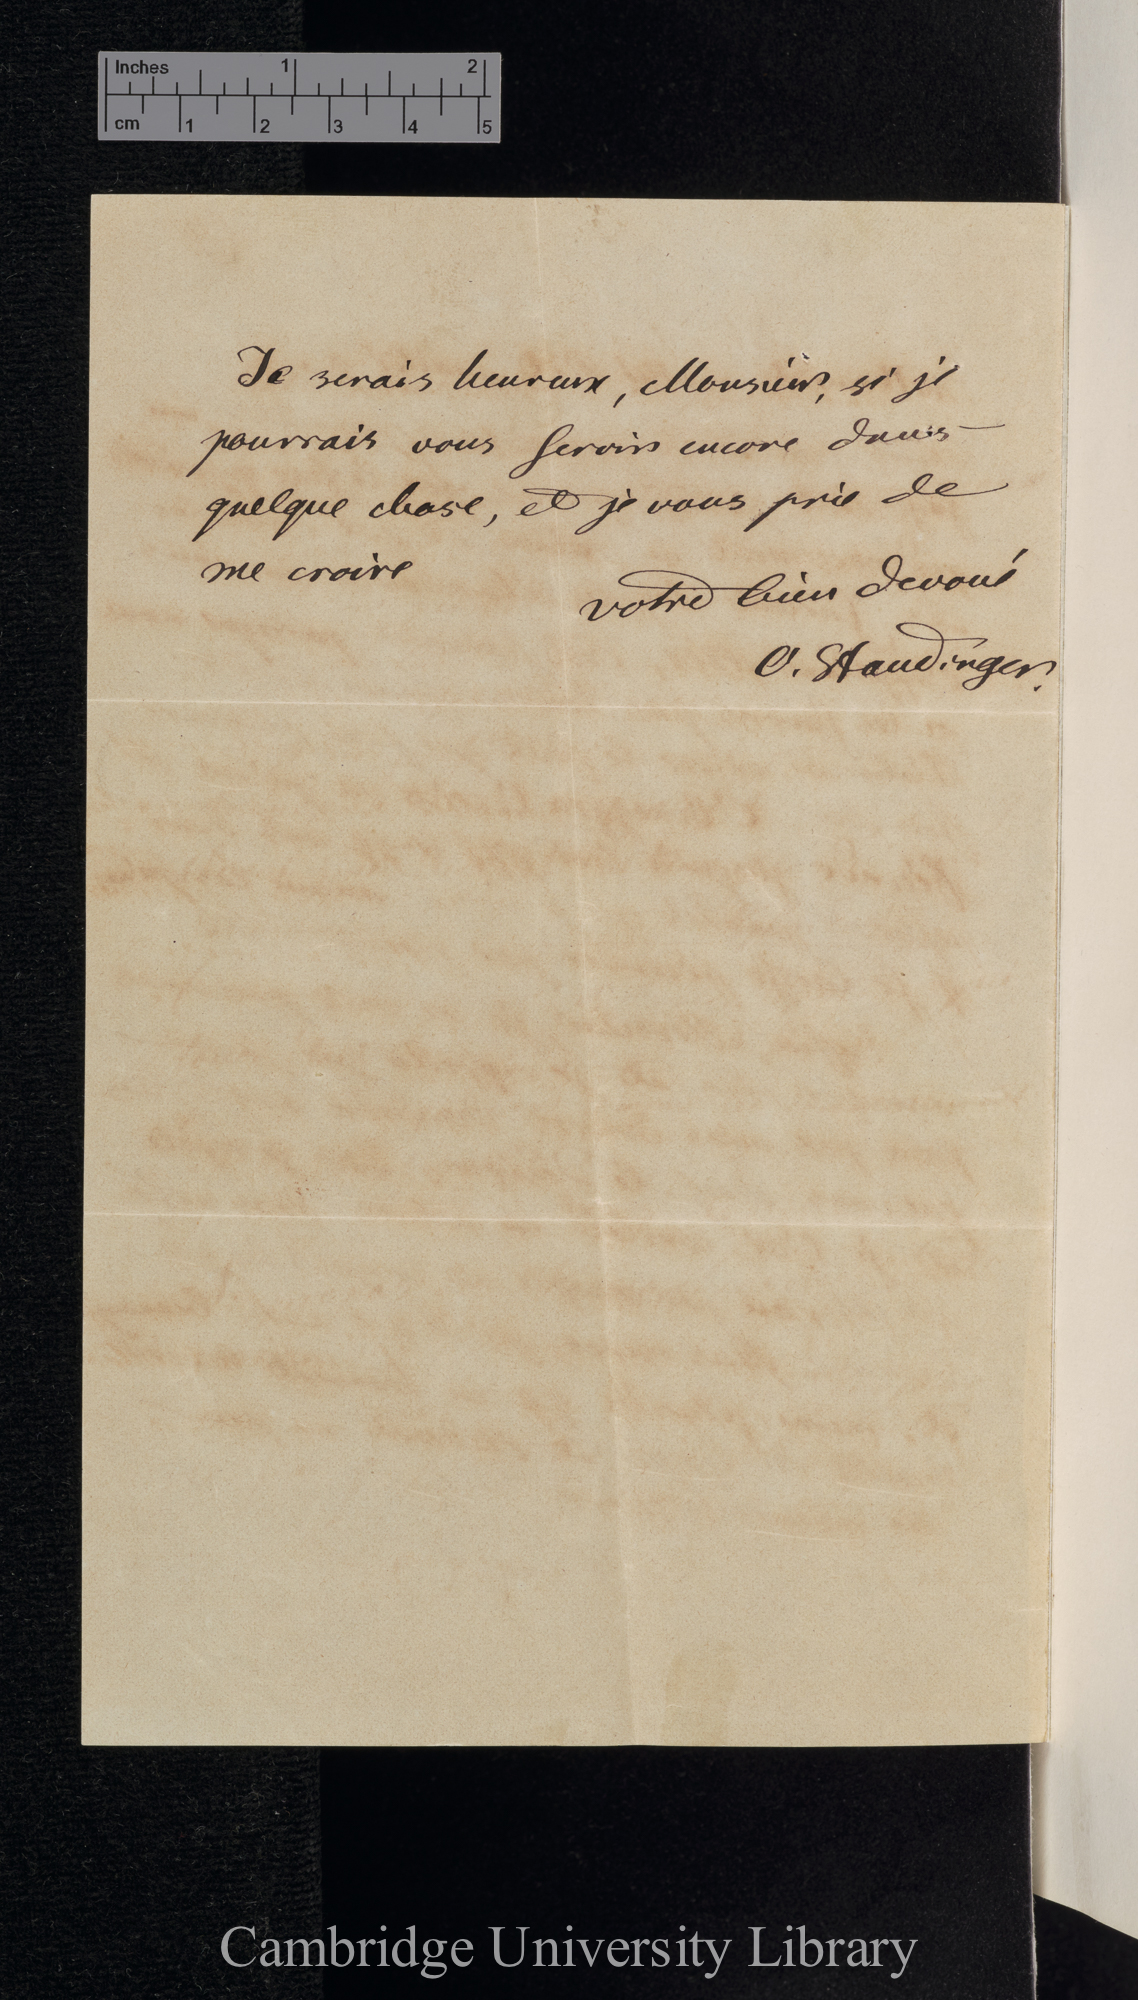 Inches 1 2
cm 1 2 3 4 5
Je serais heureux, Monsieur, si je
pourrais vous servir encore dans
quelque chose, et je vous prie de
me croire
votre bien devoué
O. Staudinger.
Cambridge University Library